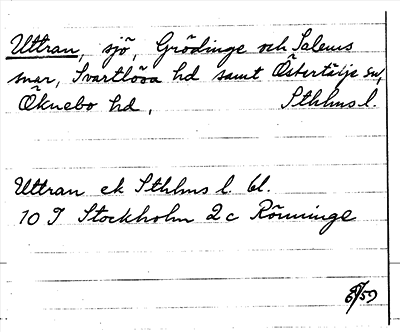 Uttran, sjö, Grödinge och Salems
snar, Svartlösa hd samt Östertälje sn,
Öknebo hd, Sthlms l.
Uttran ek Sthlms l. bl.
10 I Stockholm 2c Rönninge